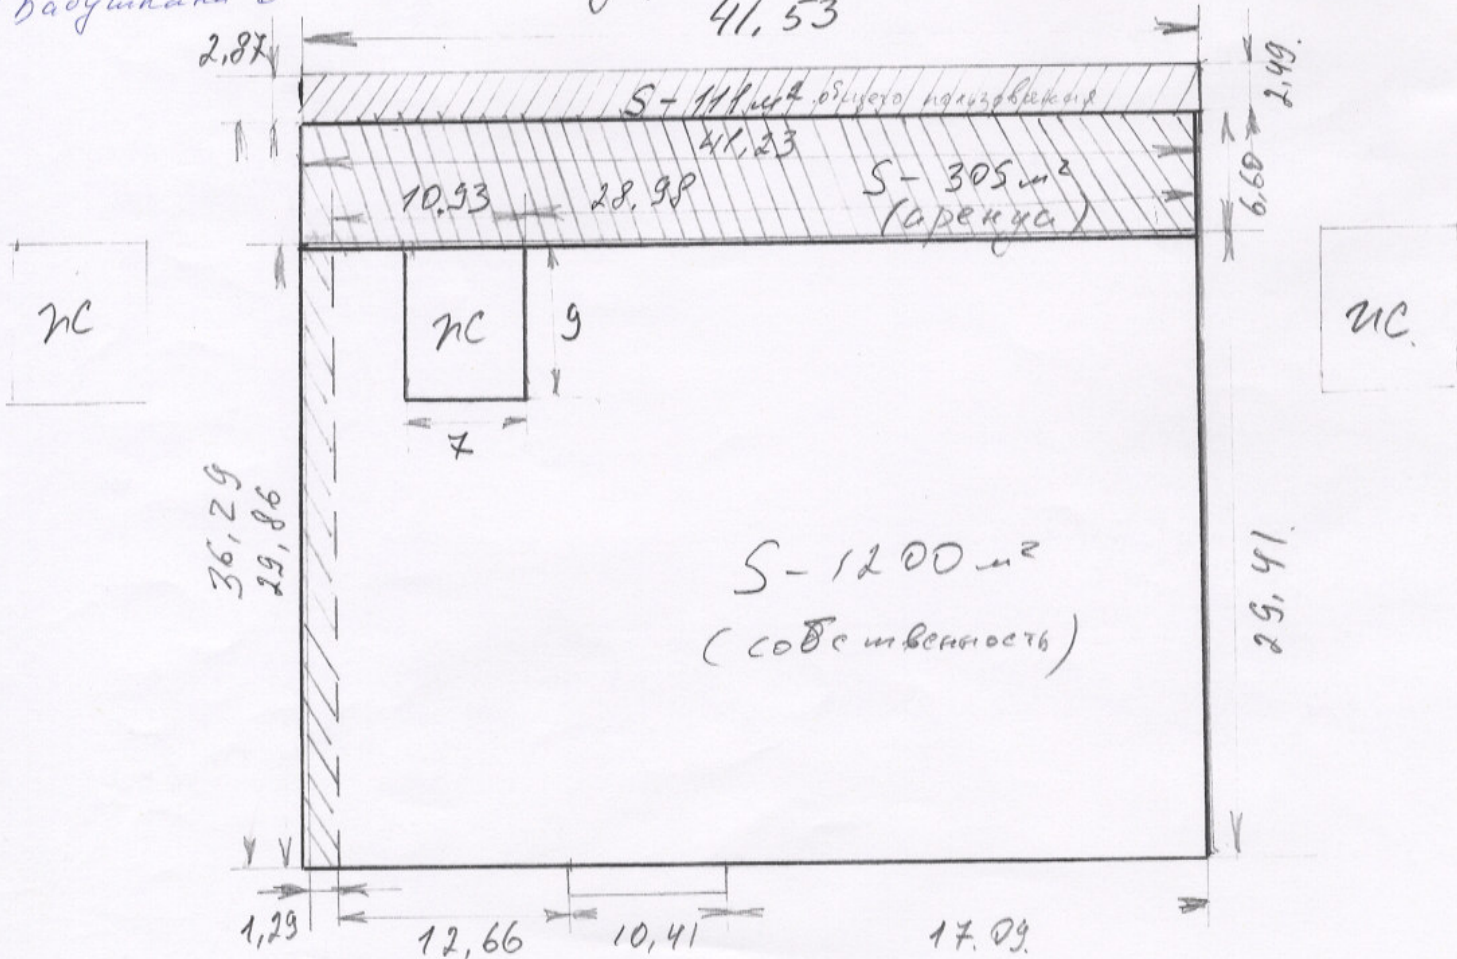 41,53
2,87
2,49.
S - 111 м² общего пользования
41,23
10.93 28.98
S - 305 м²
(аренда)
6,60
ЖС
ЖС
9
ЖС.
7
36,29
29,86
S - 1200 м²
(собственность)
29,41.
1,29 12,66 10,41 17.09.